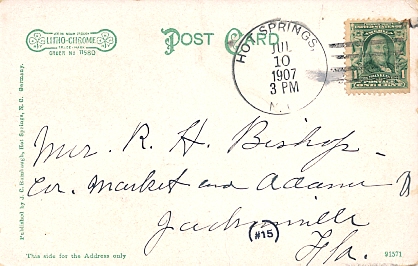 LITHO-CHROME
POST CARD
HOT SPRINGS,
JUL
10
1907
3 PM
N.
Mrs. R. H. Bishop
Cor. Market and Adams
Jacksonville
(#15)
Fla.
Published by J. C. Rumbough, Hot Springs, N. C. Germany.
This side for the Address only
91571